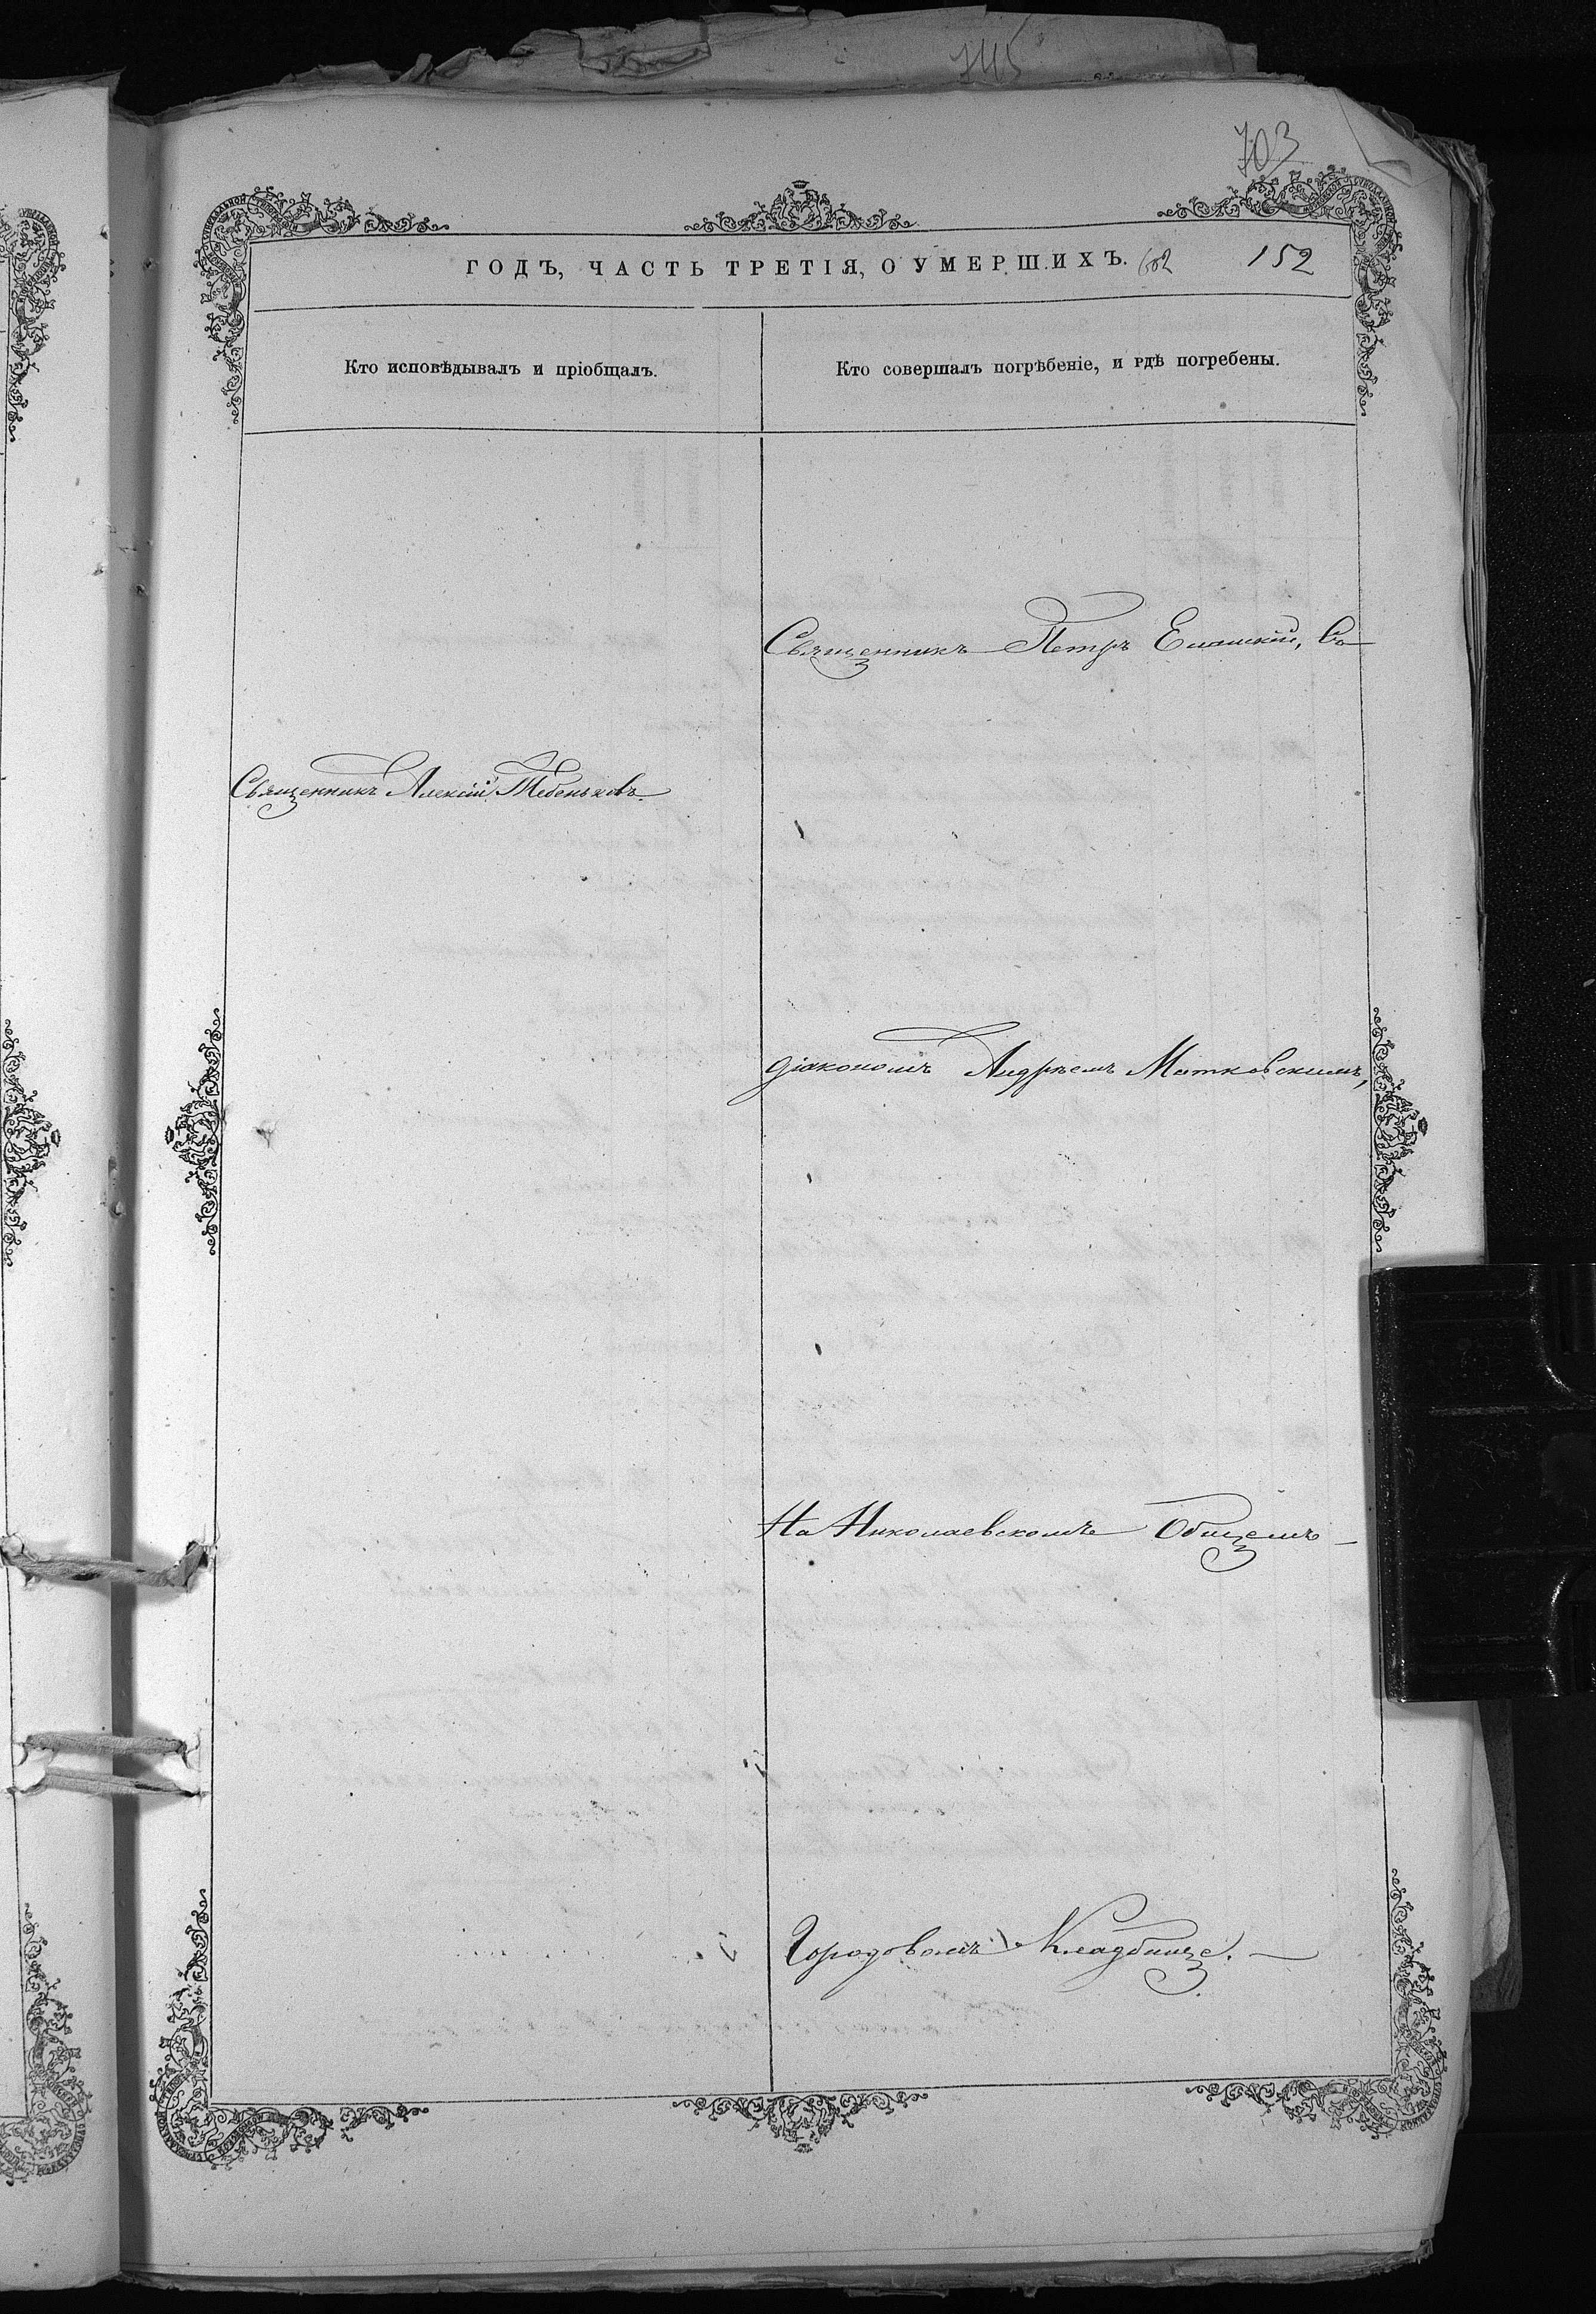 745
703
ГОДЪ, ЧАСТЬ ТРЕТІЯ, О УМЕРШИХЪ. 602 152
Кто исповѣдывалъ и пріобщалъ.
Кто совершалъ погрѣбеніе, и гдѣ погребены.
Священникъ Петръ Еланскій, Съ
Священникъ Алексій Тебеньковъ.
діакономъ Андреемъ Матковскимъ,
На Николаевскомъ Общемъ
Городовомъ Кладбище. —